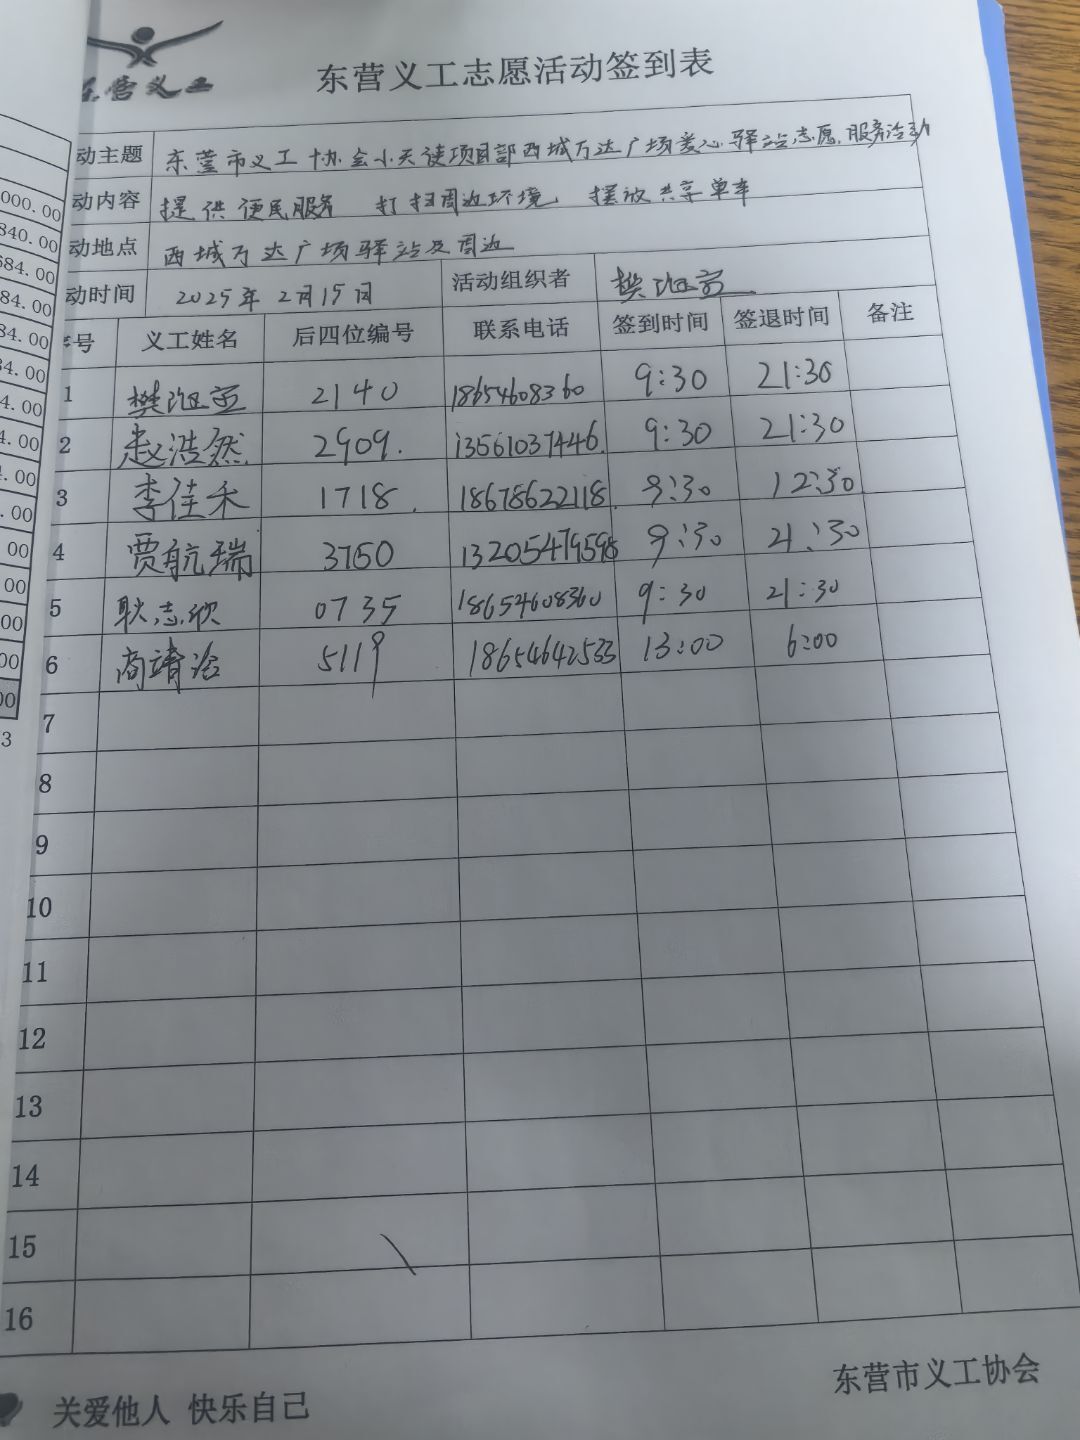 东营义工
东营义工志愿活动签到表
动主题 东营市义工协会小天使项目部西城万达广场爱心驿站志愿服务活动
动内容 提供便民服务 打扫周边环境 摆放共享单车
动地点 西城万达广场驿站及周边
动时间 2025年2月15日 活动组织者 樊
序号 义工姓名 后四位编号 联系电话 签到时间 签退时间 备注
1 樊 2140 18654608360 9:30 21:30
2 赵浩然 2909. 13561037446. 9:30 21:30
3 李佳禾 1718. 18678622118. 9:30 12:30
4 贾航瑞 3750 13205479598 9:30 21:30
5 耿志欣 0735 18654608360 9:30 21:30
6 商靖涵 5119 18654642533 13:00 6:00
7
8
9
10
11
12
13
14
15
16
关爱他人 快乐自己
东营市义工协会
000.00
840.00
684.00
84.00
84.00
84.00
4.00
4.00
4.00
.00
00
00
00
00
00
3